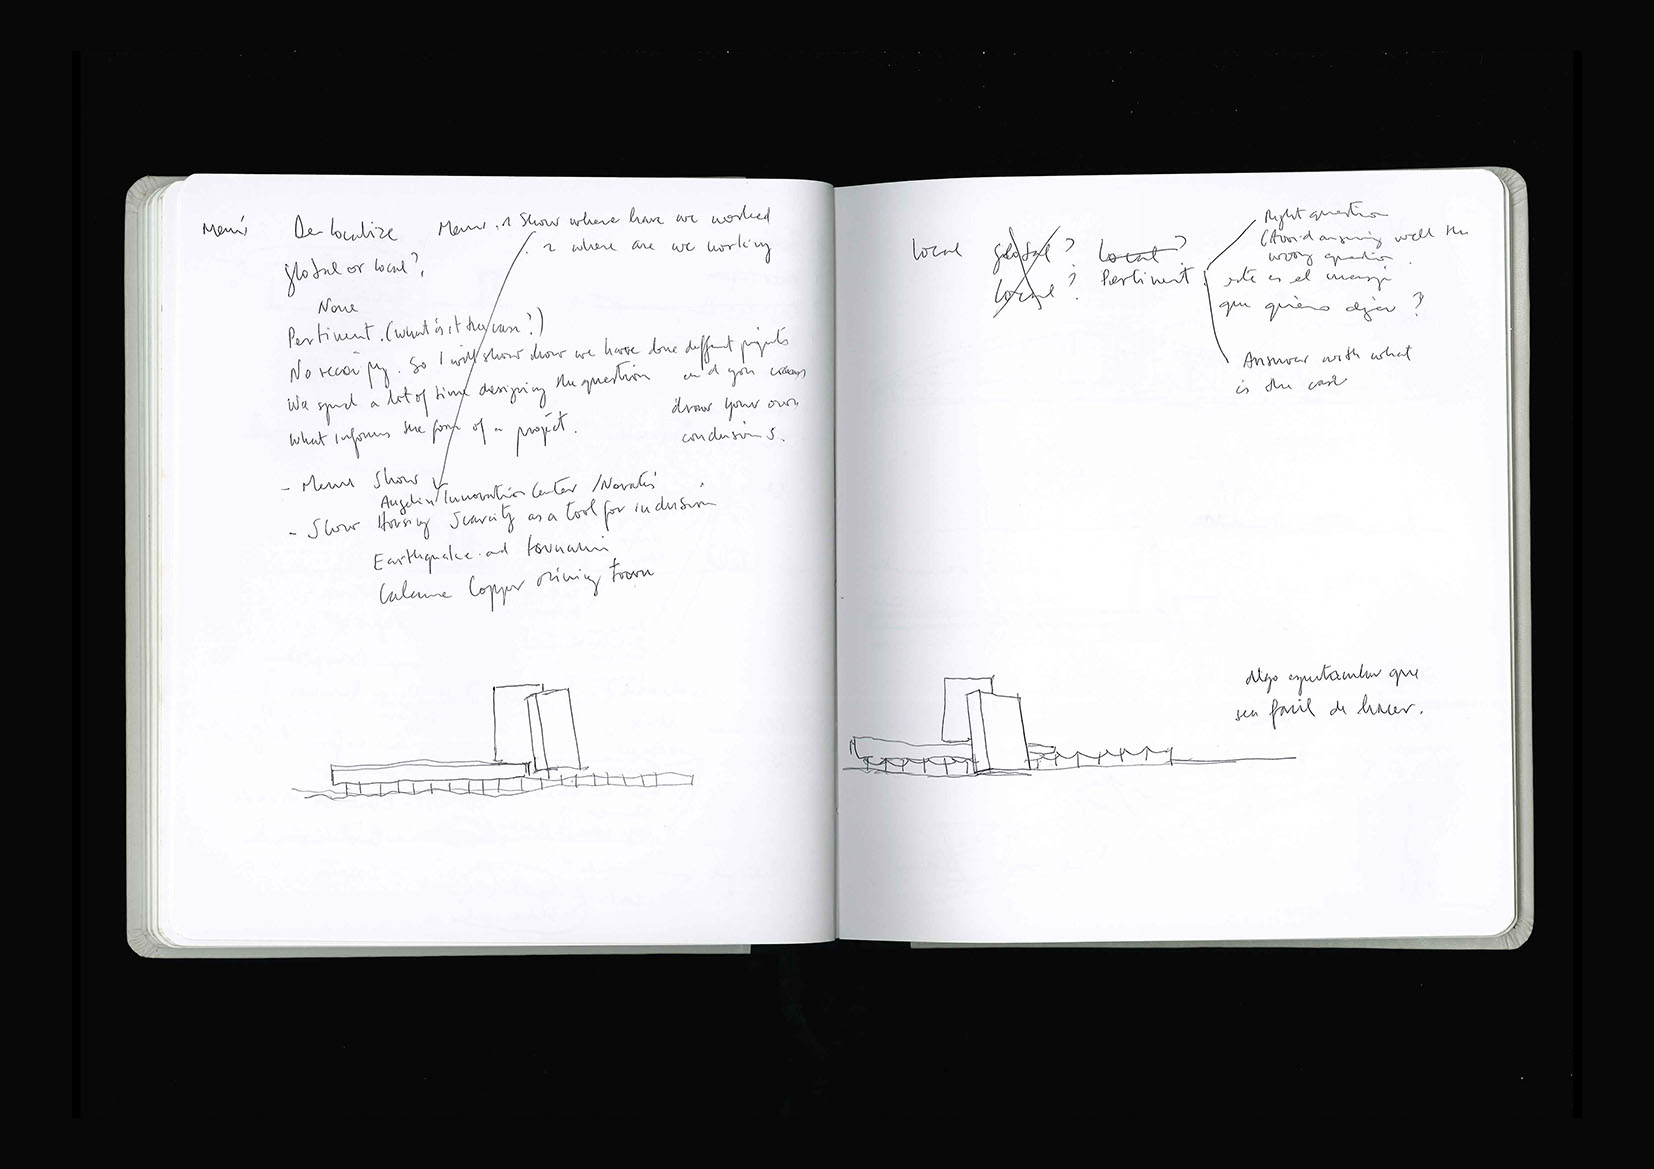 Menú De-localize Menu. 1 Show where have we worked
2 where are we working
global or local?
None
Pertinent. (What is it the case?)
No . So I will show how we have done different projects
and you
We spend a lot of time designing the question
draw your own
What informs the form of a project.
conclusions.
- Menu Show
Angelini Innovation Center / Novartis
- Show Housing Scarcity as a tool for inclusion
Earthquake and tsunami
Calama Copper mining town
Local global? Local?
Local? Pertinent
Right question
(Avoid answering well the
wrong question
este es el
que quiero dejar?
Answer with what
is the case
Algo espectacular que
sea fácil de hacer.